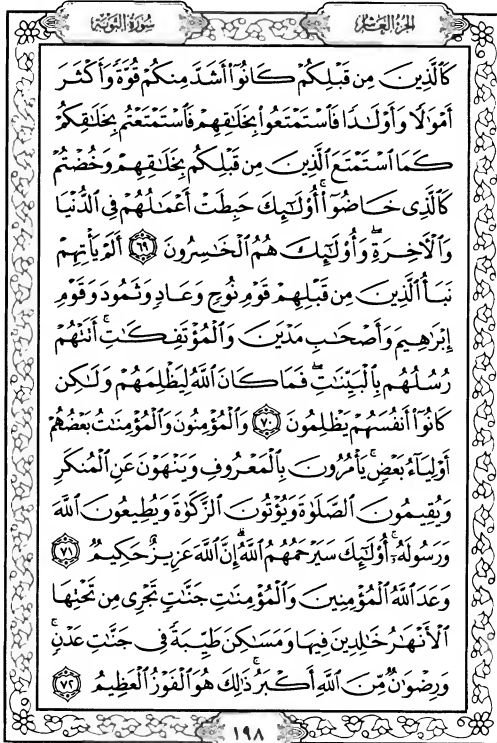 سورة التوبة
الجزء العاشر
كَٱلَّذِينَ مِن قَبۡلِكُمۡ كَانُوٓاْ أَشَدَّ مِنكُمۡ قُوَّةٗ وَأَكۡثَرَ
أَمۡوَٰلٗا وَأَوۡلَٰدٗا فَٱسۡتَمۡتَعُواْ بِخَلَٰقِهِمۡ فَٱسۡتَمۡتَعۡتُم بِخَلَٰقِكُمۡ
كَمَا ٱسۡتَمۡتَعَ ٱلَّذِينَ مِن قَبۡلِكُم بِخَلَٰقِهِمۡ وَخُضۡتُمۡ
كَٱلَّذِي خَاضُوٓاْۚ أُوْلَٰٓئِكَ حَبِطَتۡ أَعۡمَٰلُهُمۡ فِي ٱلدُّنۡيَا
وَٱلۡأٓخِرَةِۖ وَأُوْلَٰٓئِكَ هُمُ ٱلۡخَٰسِرُونَ ٦٩ أَلَمۡ يَأۡتِهِمۡ
نَبَأُ ٱلَّذِينَ مِن قَبۡلِهِمۡ قَوۡمِ نُوحٖ وَعَادٖ وَثَمُودَ وَقَوۡمِ
إِبۡرَٰهِيمَ وَأَصۡحَٰبِ مَدۡيَنَ وَٱلۡمُؤۡتَفِكَٰتِۚ أَتَتۡهُمۡ
رُسُلُهُم بِٱلۡبَيِّنَٰتِۖ فَمَا كَانَ ٱللَّهُ لِيَظۡلِمَهُمۡ وَلَٰكِن
كَانُوٓاْ أَنفُسَهُمۡ يَظۡلِمُونَ ٧٠ وَٱلۡمُؤۡمِنُونَ وَٱلۡمُؤۡمِنَٰتُ بَعۡضُهُمۡ
أَوۡلِيَآءُ بَعۡضٖۚ يَأۡمُرُونَ بِٱلۡمَعۡرُوفِ وَيَنۡهَوۡنَ عَنِ ٱلۡمُنكَرِ
وَيُقِيمُونَ ٱلصَّلَوٰةَ وَيُؤۡتُونَ ٱلزَّكَوٰةَ وَيُطِيعُونَ ٱللَّهَ
وَرَسُولَهُۥٓۚ أُوْلَٰٓئِكَ سَيَرۡحَمُهُمُ ٱللَّهُۗ إِنَّ ٱللَّهَ عَزِيزٌ حَكِيمٞ ٧١
وَعَدَ ٱللَّهُ ٱلۡمُؤۡمِنِينَ وَٱلۡمُؤۡمِنَٰتِ جَنَّٰتٖ تَجۡرِي مِن تَحۡتِهَا
ٱلۡأَنۡهَٰرُ خَٰلِدِينَ فِيهَا وَمَسَٰكِنَ طَيِّبَةٗ فِي جَنَّٰتِ عَدۡنٖۚ
وَرِضۡوَٰنٞ مِّنَ ٱللَّهِ أَكۡبَرُۚ ذَٰلِكَ هُوَ ٱلۡفَوۡزُ ٱلۡعَظِيمُ ٧٢
١٩٨